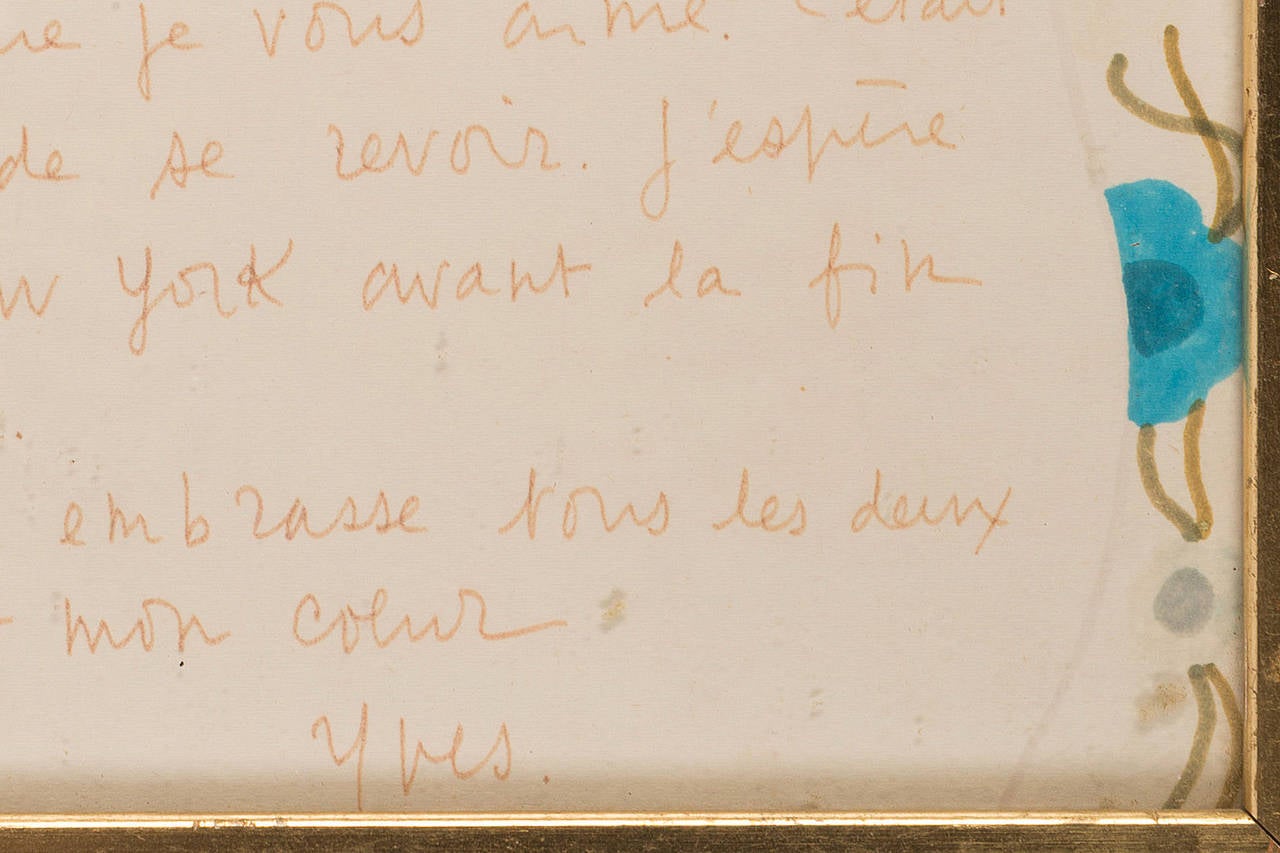 je vous aime. C'était
de se revoir. J'espère
York avant la fin
embrasse tous les deux
mon coeur
Yves.